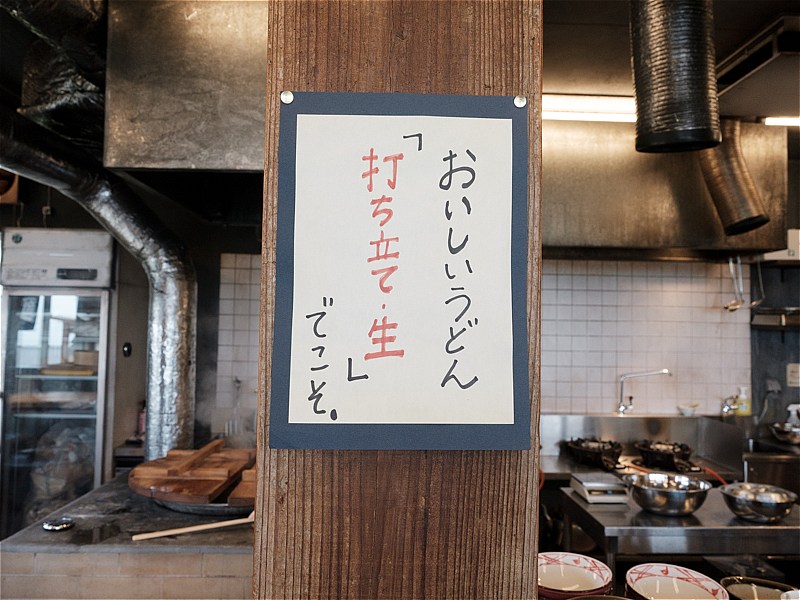 おいしいうどん
「打ち立て・生」
でこそ。